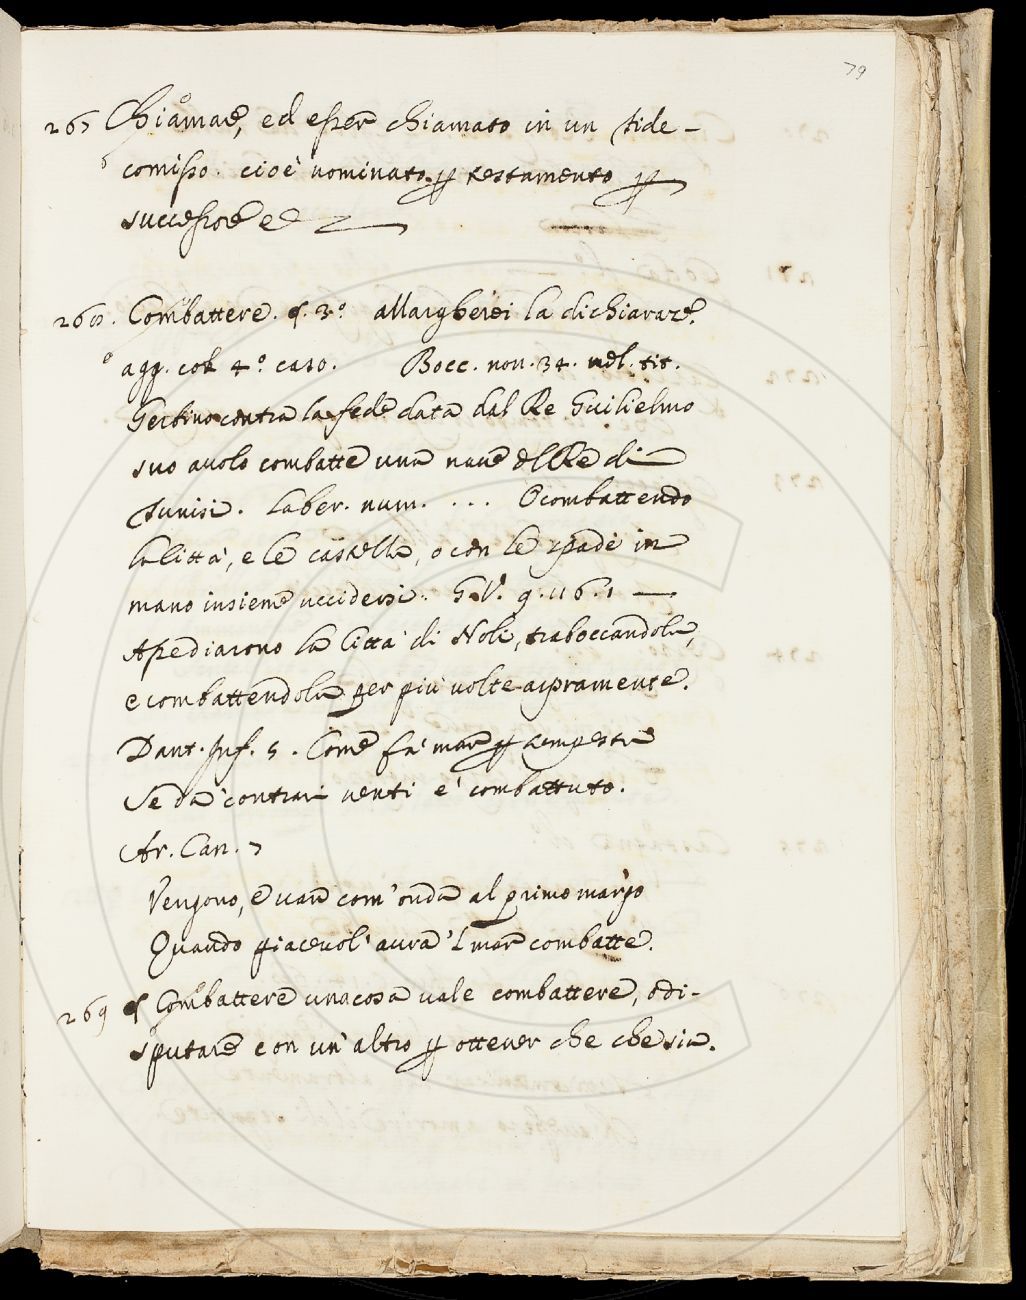 79
267 Chiamare, ed esser chiamato in un fide-
comisso. cioè nominato p testamento p
successore
268. Combattere. §. 3.° all'argherei la dichiarare.
agg. col 4.° caso. Bocc. nov. 34. nel. tit.
Gerbino contra la fede data dal Re Guilielmo
suo avolo combatte una nave del Re di
Tunisi. Laber. num. ... O combattendo
la Città, e le castella, o con le spade in
mano insieme uccidersi. G.V. 9.116.1
Assediarono la Città di Noli, traboccandola,
e combattendola per più volte aspramente.
Dant. Inf. 5. Come fa' mar p tempesta
Se da' contrari venti e' combattuto.
Ar. Can. 7
Vengono, e van com' onda al primo margo
Quando piacevol' aura 'l mar combatte.
269 § Combattere una cosa vale combattere, o di-
sputare con un' altro p ottener che che sia.